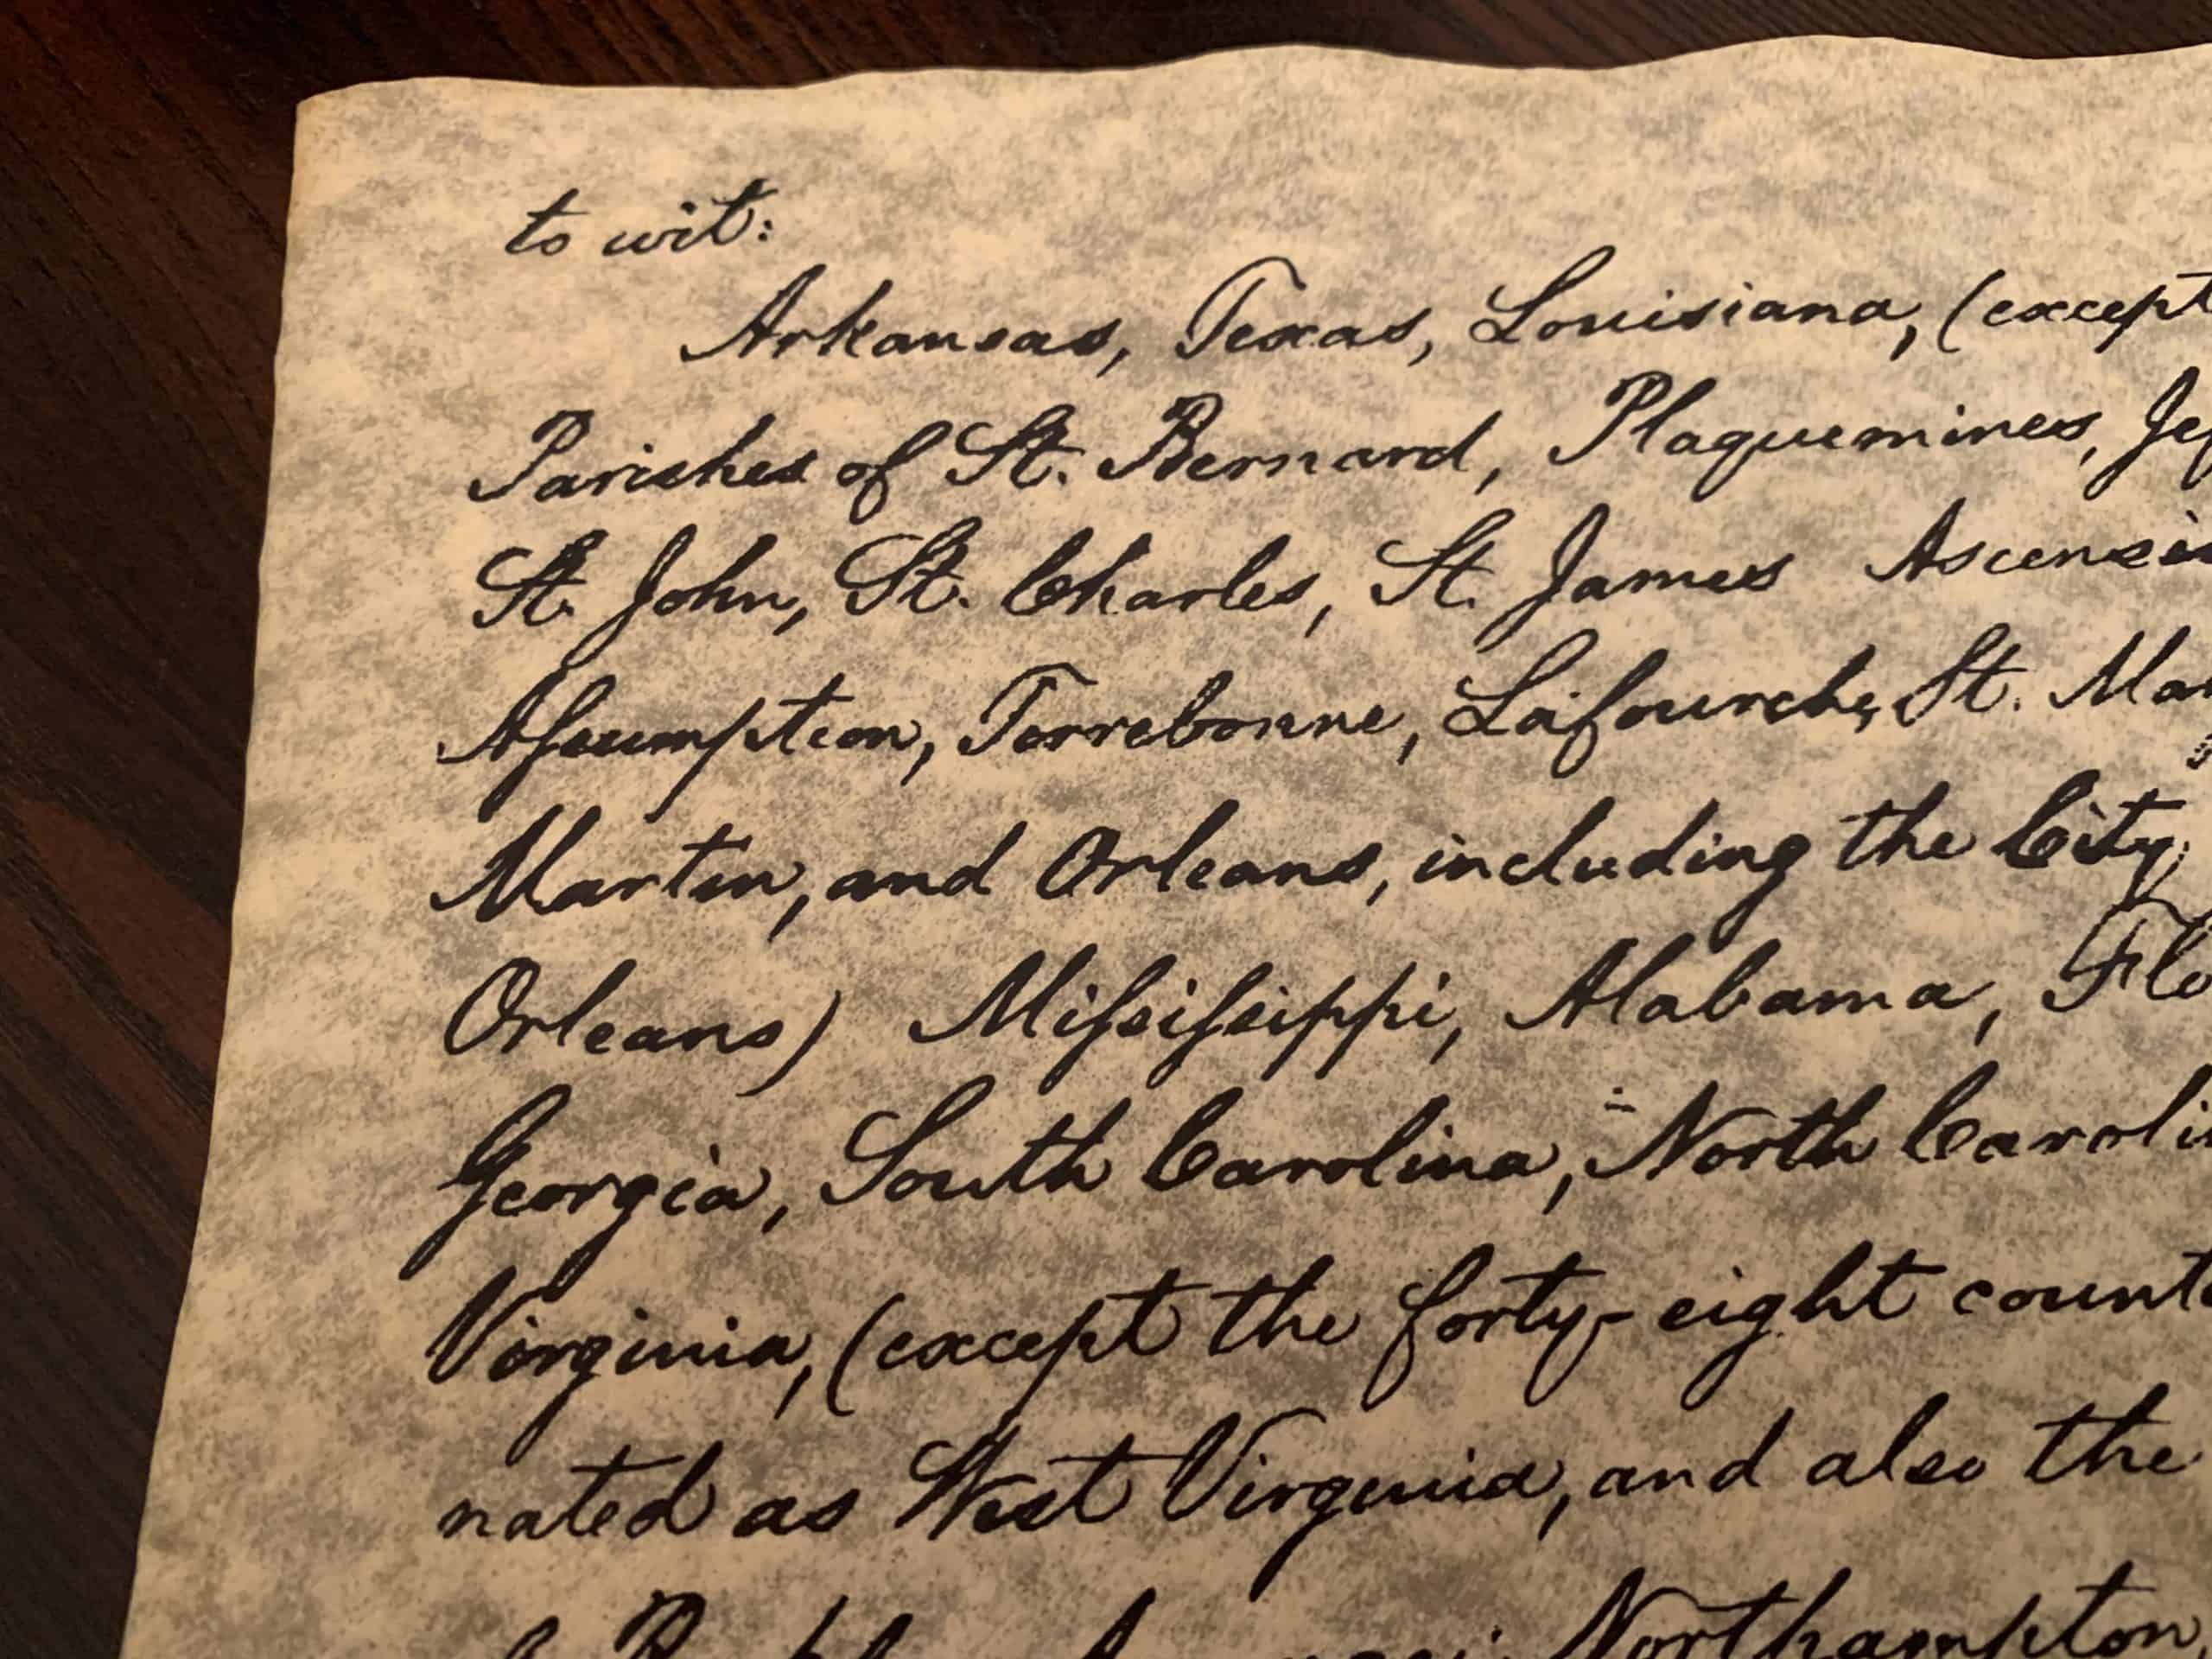 to wit:
Arkansas, Texas, Louisiana, (except
Parishes of St. Bernard, Plaquemines, Jef
St. John, St. Charles, St. James Ascensi
Aſsumption, Terrebonne, Lafourche, St. Mar
Martin, and Orleans, including the City
Orleans) Miſsiſsippi, Alabama, Flo
Georgia, South Carolina, North Caroli
Virginia, (except the forty-eight count
nated as West Virginia, and also the
Northampton,